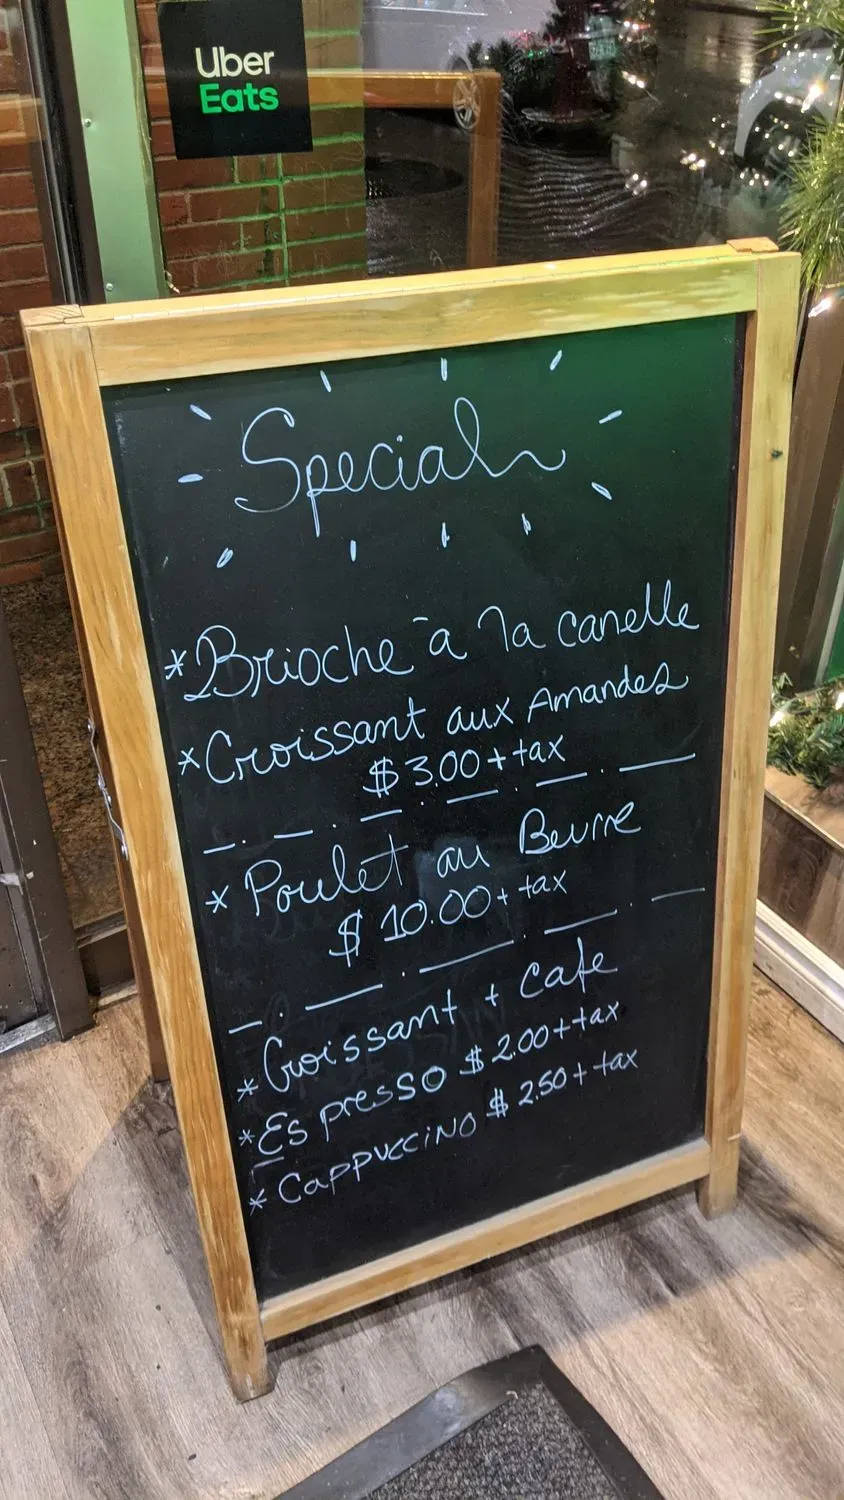 Uber
Eats
Special
*Brioche à la canelle
*Croissant aux Amandes
$3.00++tax
* Poulet au Beurre
$10.00+tax
*Croissant + Cafe
*Espresso $2.00++tax
* Cappuccino $2.50++tax